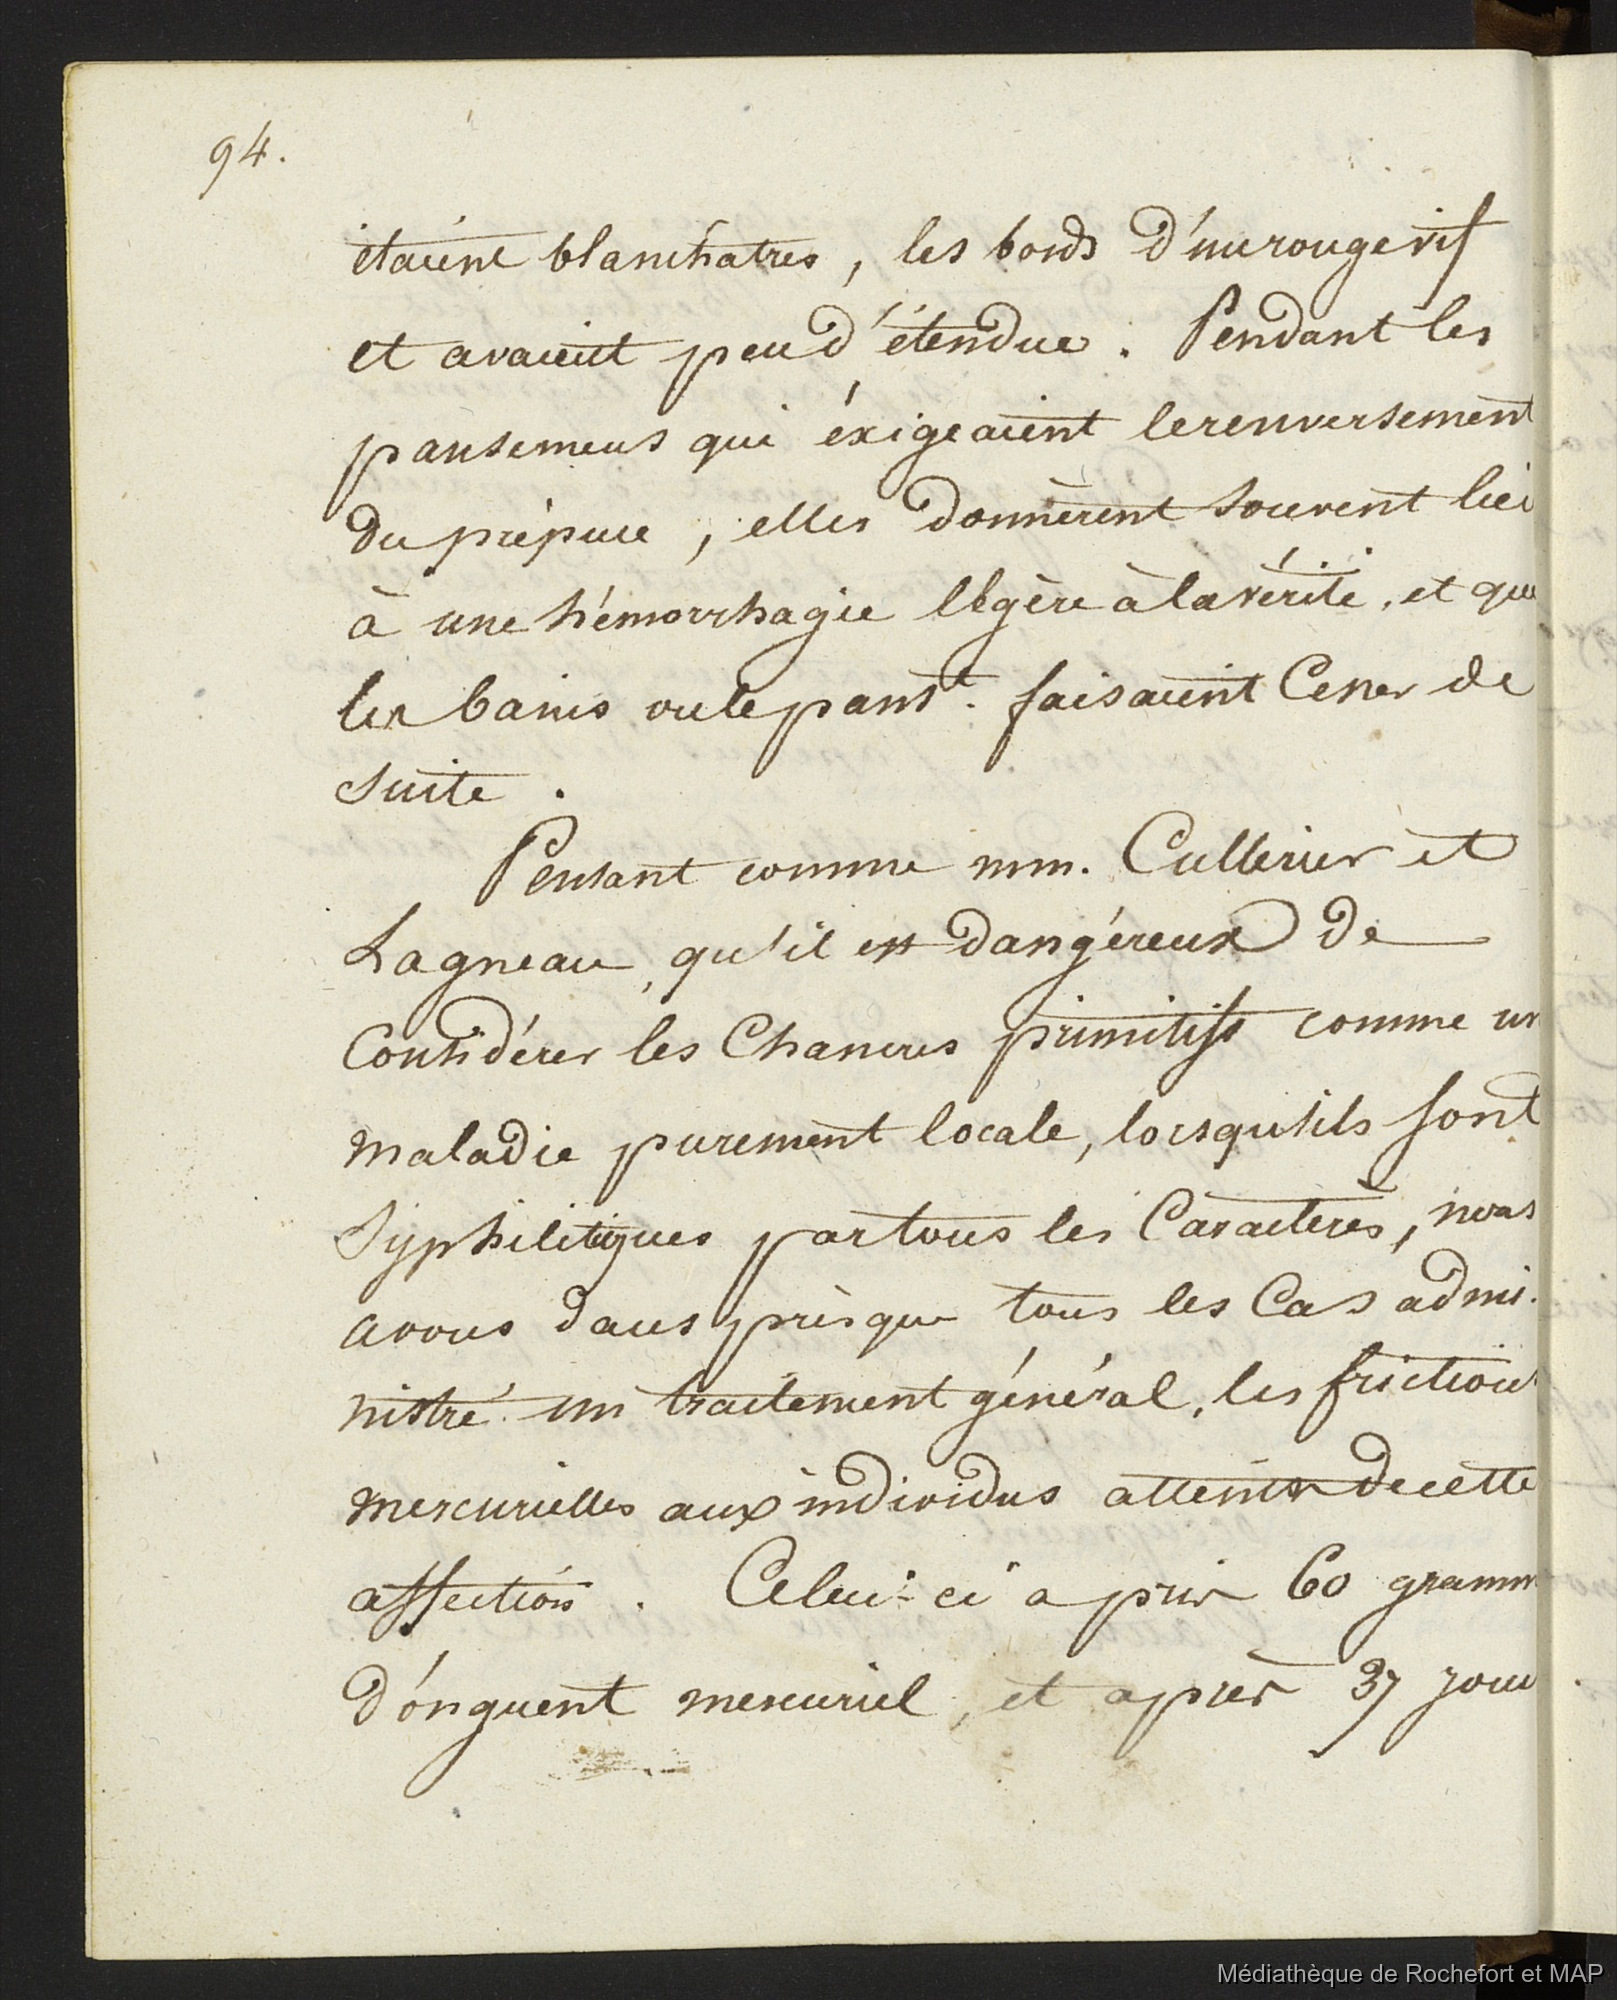 94.
étaient blanchatres, les bords d'un rouge vif
et avaient peu d'étendue. Pendant les
pansemens qui éxigeaient le renversement
du prépuce, elles donnèrent souvent lieu
à une hémorrhagie légère à la vérité, et que
les bains ou le panst. faisaient Cesser de
suite.
Pensant comme mm. Cullerier et
Lagneau, qu'il est dangéreux de
Considérer les Chancres primitifs comme un
maladie purement locale, lorsqu'ils sont
Syphilitiques par tous les Caractères, nous
avons dans prèsque tous les Cas admi-
nistré un traitement général, les frictions
mercurielles aux individus atteints de cette
affection. Celui-ci a pris 60 gramm
d'onguent mercuriel, et après 37 jour
Médiathèque de Rochefort et MAP